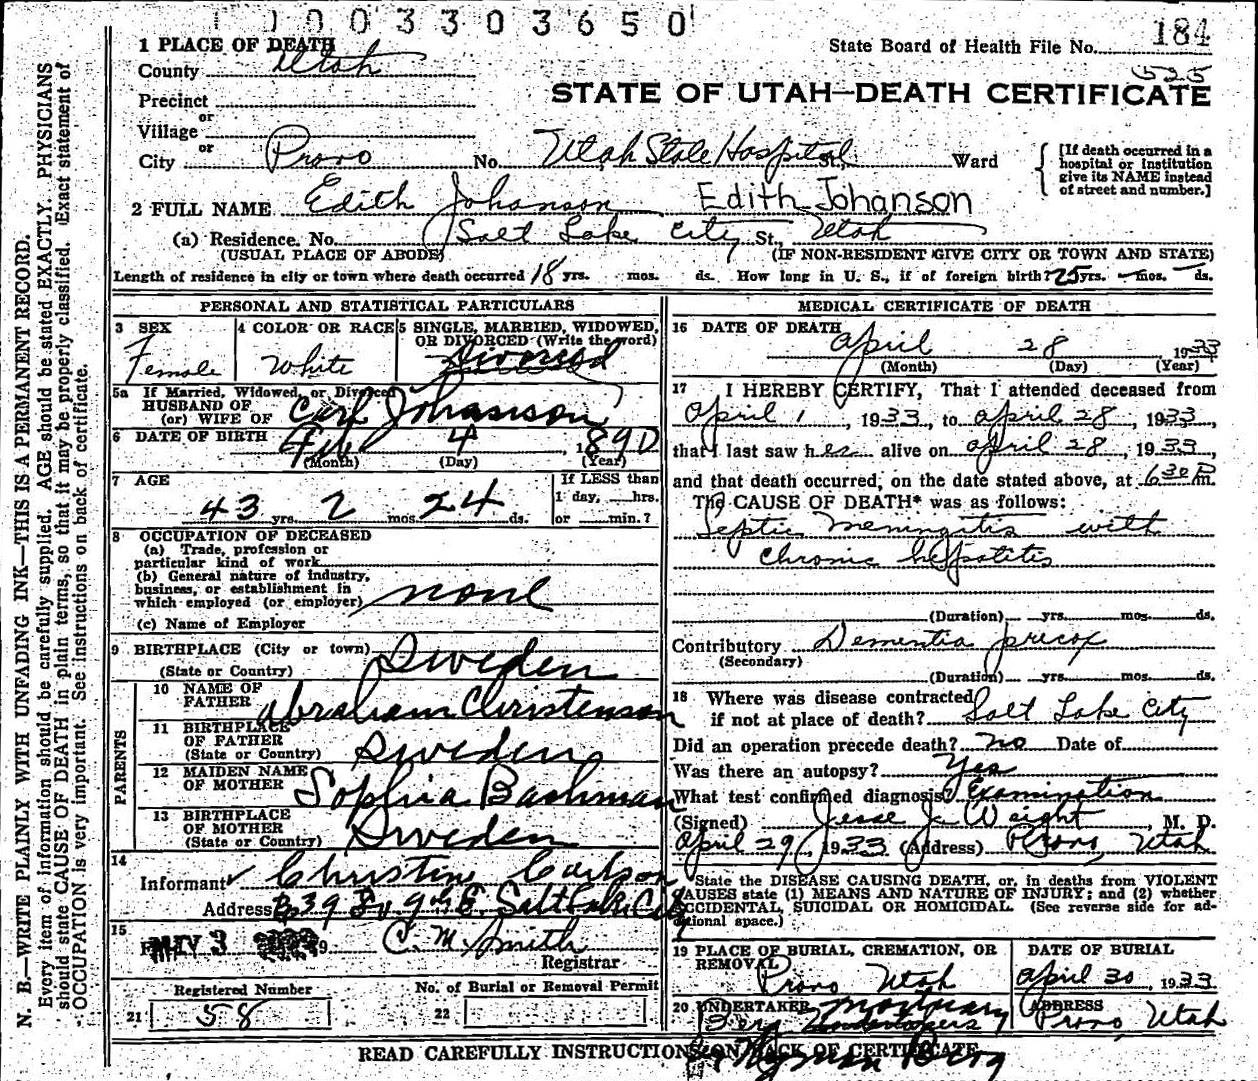 0 0 3 3 0 3 6 5 0
1 PLACE OF DEATH
County Utah
State Board of Health File No. 184
525
STATE OF UTAH—DEATH CERTIFICATE
Precinct
or
Village
or
City Provo No. Utah State Hospital St., Ward
[If death occurred in a hospital or institution give its NAME instead of street and number.]
2 FULL NAME Edith Johanson Edith Johanson
(a) Residence. No. Salt Lake City St., Utah
(USUAL PLACE OF ABODE) (IF NON-RESIDENT GIVE CITY OR TOWN AND STATE)
Length of residence in city or town where death occurred 18 yrs. mos. ds. How long in U. S., if of foreign birth? 25 yrs. — mos. — ds.
PERSONAL AND STATISTICAL PARTICULARS
3 SEX
Female
4 COLOR OR RACE
White
5 SINGLE, MARRIED, WIDOWED, OR DIVORCED (Write the word)
Divorced
5a If Married, Widowed, or Divorced
HUSBAND OF
(or) WIFE OF Carl Johanson
6 DATE OF BIRTH Feb 4, 1890
(Month) (Day) (Year)
7 AGE
43 yrs. 2 mos. 24 ds.
If LESS than
1 day, hrs.
or min.?
8 OCCUPATION OF DECEASED
(a) Trade, profession or
particular kind of work
(b) General nature of industry,
business, or establishment in
which employed (or employer) none
(c) Name of Employer
9 BIRTHPLACE (City or town) Sweden
(State or Country)
PARENTS
10 NAME OF
FATHER Abraham Christenson
11 BIRTHPLACE
OF FATHER
(State or Country) Sweden
12 MAIDEN NAME
OF MOTHER Sophia Bashman
13 BIRTHPLACE
OF MOTHER
(State or Country) Sweden
14
Informant Christine Carlson
Address Salt Lake City
15
MAY 3 C. M. Smith
Registrar
Registered Number
21 58
No. of Burial or Removal Permit
22
MEDICAL CERTIFICATE OF DEATH
16 DATE OF DEATH
April 28 1933
(Month) (Day) (Year)
17 I HEREBY CERTIFY, That I attended deceased from
April 1, 1933, to April 28, 1933,
that I last saw her alive on April 28, 1933,
and that death occurred, on the date stated above, at 6:30 P.m.
The CAUSE OF DEATH* was as follows:
Septic Meningitis with
Chronic hepatitis
(Duration) yrs. mos. ds.
Contributory Dementia precox
(Secondary)
(Duration) yrs. mos. ds.
18 Where was disease contracted
if not at place of death? Salt Lake City
Did an operation precede death? no Date of
Was there an autopsy? Yes
What test confirmed diagnosis? Examination
(Signed) Jesse J. Weight, M. D.
April 29, 1933 (Address) Provo, Utah
* State the DISEASE CAUSING DEATH, or, in deaths from VIOLENT
CAUSES state (1) MEANS AND NATURE OF INJURY; and (2) whether
ACCIDENTAL, SUICIDAL OR HOMICIDAL. (See reverse side for ad-
ditional space.)
19 PLACE OF BURIAL, CREMATION, OR
REMOVAL
Provo Utah
DATE OF BURIAL
April 30, 1933
20 UNDERTAKER
Berg Mortuary
ADDRESS
Provo, Utah
READ CAREFULLY INSTRUCTIONS ON BACK OF CERTIFICATE
N. B.—WRITE PLAINLY WITH UNFADING INK—THIS IS A PERMANENT RECORD.
Every item of information should be carefully supplied. AGE should be stated EXACTLY. PHYSICIANS
should state CAUSE OF DEATH in plain terms, so that it may be properly classified. Exact statement of
OCCUPATION is very important. See instructions on back of certificate.